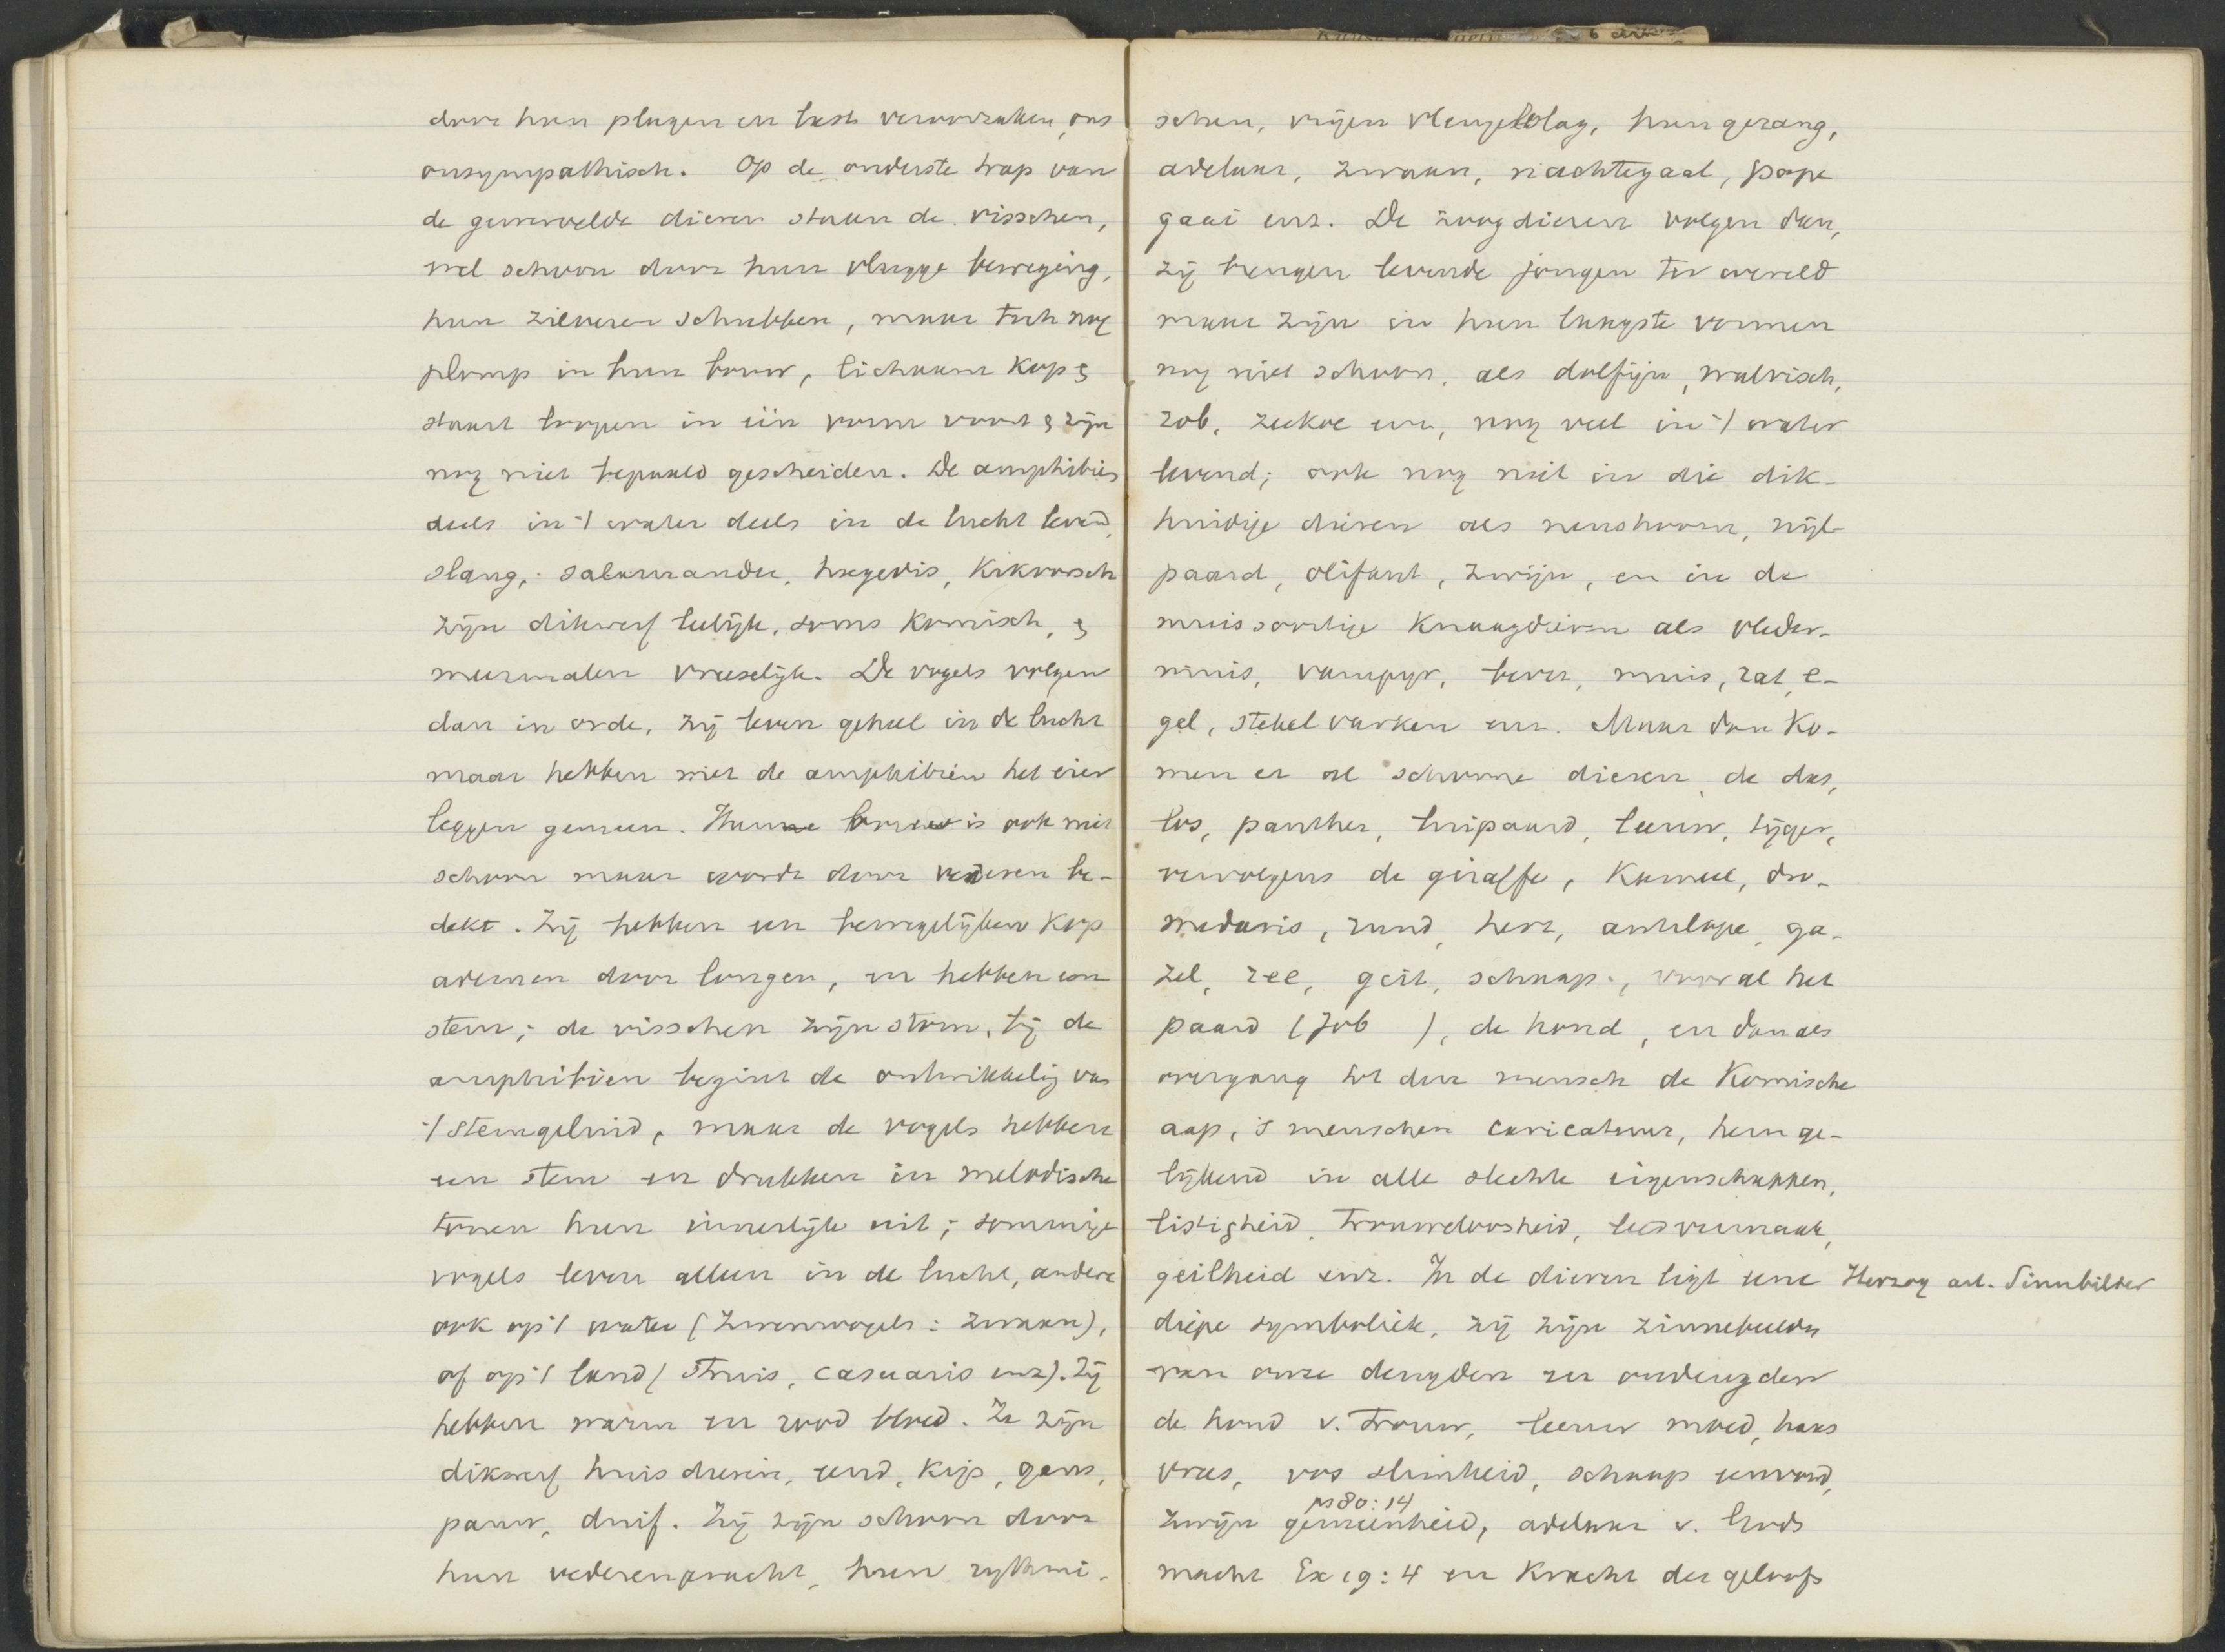 door hun plagen en last veroorzaken, ons
onsympathisch. Op de onderste trap van
de gewervelde dieren staan de visschen,
wel schoon door hun vlugge beweging,
hun zilveren schubben, maar toch nog
plomp in hun bouw, lichaam kop &
staart loopen in één vorm voort & zijn
nog niet bepaald gescheiden. De amphibiën
deels in 't water deels in de lucht levend,
slang, salamander, hagedis, kikvorsch
zijn dikwerf leelijk, soms komisch, &
meermalen vreeselijk. De vogels volgen
dan in orde, zij leven geheel in de lucht
maar hebben met de amphibiën het eier
leggen gemeen. Hun bouw is ook niet
schoon maar wordt door vederen be-
dekt. Zij hebben een bewegelijken kop
ademen door longen, en hebben een
stem; de visschen zijn stom, bij de
amphibiën begint de ontwikkelig van
't stemgeluid, maar de vogels hebben
een stem en drukken in melodische
tonen hun innerlijk uit; sommige
vogels leven alleen in de lucht, andere
ook op 't water (zwemvogels: zwaan),
of op 't land (struis, casuaris enz). Zij
hebben warm en rood bloed. Ze zijn
dikwerf huisdieren, eend, kip, gans,
pauw, duif. Zij zijn schoon door
hun vederenpracht, hun rythmi-
schen, vrijen vleugelslag, hun gezang,
adelaar, zwaan, nachtegaal, pape
gaai enz. De zoogdieren volgen dan,
zij brengen levende jongen ter wereld
maar zijn in hun laagste vormen
nog niet schoon, als dolfijn, walvisch,
rob, zeekoe enz, nog veel in 't water
levend; ook nog niet in die dik-
huidige dieren als neushoorn, nijl-
paard, olifant, zwijn, en in de
muissoortige knaagdieren als vleder-
muis, vampyr, bever, muis, rat, e-
gel, stekelvarken enz. Maar dan ko-
men er al schoone dieren, de das,
los, panther, luipaard, leeuw, tijger,
vervolgens de giraffe, kameel, dro-
medaris, rund, hert, antelope, ga-
zel, ree, geit, schaap, vooral het
paard (Job ), de hond, en dan als
overgang tot den mensch de komische
aap, 's menschen caricatuur, hem ge-
lijkend in alle slechte eigenschappen,
listigheid, trouweloosheid, leedvermaak,
geilheid enz. In de dieren ligt eene Herzog art. Sinnbilder
diepe symboliek, zij zijn zinnebeelden
van onze deugden en ondeugden
de hond v. trouw, leeuw moed, haas
vrees, vos slimheid, schaap eenvoud,
ps 80:14
zwijn gemeenheid, adelaar v. Gods
macht Ex 19:4 en kracht des geloofs